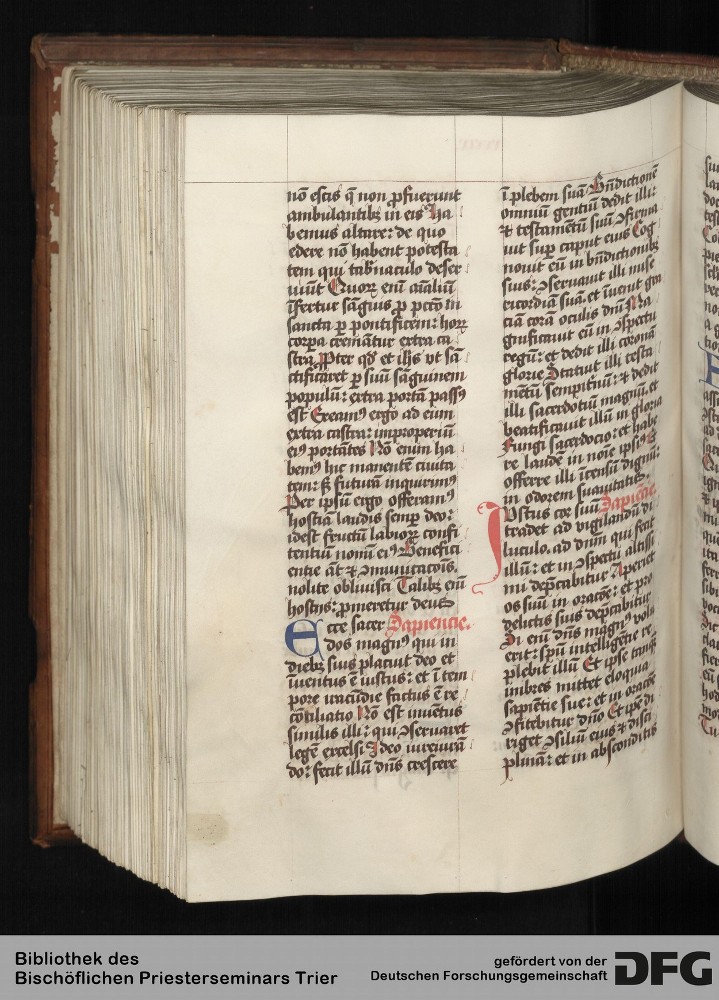 nō estis q̄ non ꝓfuerunt
ambulantibꝫ in eis Ha
bemus altare: de quo
edere nō habent potesta
tem qui tab̄naculo deser
uiūt Quoꝝ enī aīaliū
īfertur sāguis ꝓ pctō in
sancta ꝑ pontificem: hoꝝ
corꝑa cremātur extra ca
stra Ꝓpter qd̛ et ih̄s vt sā
ctificaret ꝑ suū sāguinem
populū: extra portā passꝰ
est Exeamꝰ ergo ad eum
extra castra: improperiū
eiꝰ portātes Nō enim ha
bemꝰ hic manentē ciuita
tem: sꝫ futurā inquirimꝰ
Per ipsū ergo offeramꝰ
hostiā laudis semꝑ deo:
idest fructū labioꝝ confi
tentiū nomī eiꝰ Benefici
entie āt ⁊ ꝯmunicatōis.
nolite obliuisci Talibꝫ enī
hostijs: ꝓmeretur deus
Ecce sacer Sapiencie.
dos magnꝰ qui in
diebꝫ suis placuit deo et
īuentus ē iustus: et ī tem
pore iracūdie factus ē re
cōciliatio Nō est inuētus
similis illi: qui ꝯseruaret
legē excelsi Ideo iureiurā
do: fecit illū dn̄s crescere
ī plebem suā Bn̄dictionē
omniū gentiū dedit illi:
⁊ testamētū suū ꝯfirma
uit suꝑ caput eius Cog
nouit eū in bn̄dictionibꝫ
suis: ꝯseruauit illi mise
ricordiā suā: et īuenit gra
ciā corā oculis dn̄i Ma
gnificauit eū in ꝯspectu
regū: et dedit illi coronā
glorie Statuit illi testa
mētū sempit̄nū: ⁊ dedit
illi sacerdotiū magnū: et
beatificauit illū in gloria
Fungi sacerdocio: et habe
re laudē in noīe ipsiꝰ Et
offerre illi īcensū dignū:
in odorem suauitatis.
Iustus cor suū Sapiēcie.
tradet ad vigilandū di
luculo. ad dn̄m qui fecit
illū: et in ꝯspectu altissi
mi dep̄cabitur Aperiet
os suū in oracōe: et pro
delictis suis dep̄cabitur
Si enī dn̄s magnꝰ volu
erit: spū intelligētie re
plebit illū Et ipse tanqꝫ
imbres mittet eloquia
sapiētie sue: et in oracōe
ꝯfitebitur dn̄o Et ip̄e di
riget ꝯsiliū eius ⁊ disci
plinā: et in absconditis
Bibliothek des
Bischöflichen Priesterseminars Trier
gefördert von der
Deutschen Forschungsgemeinschaft
DFG